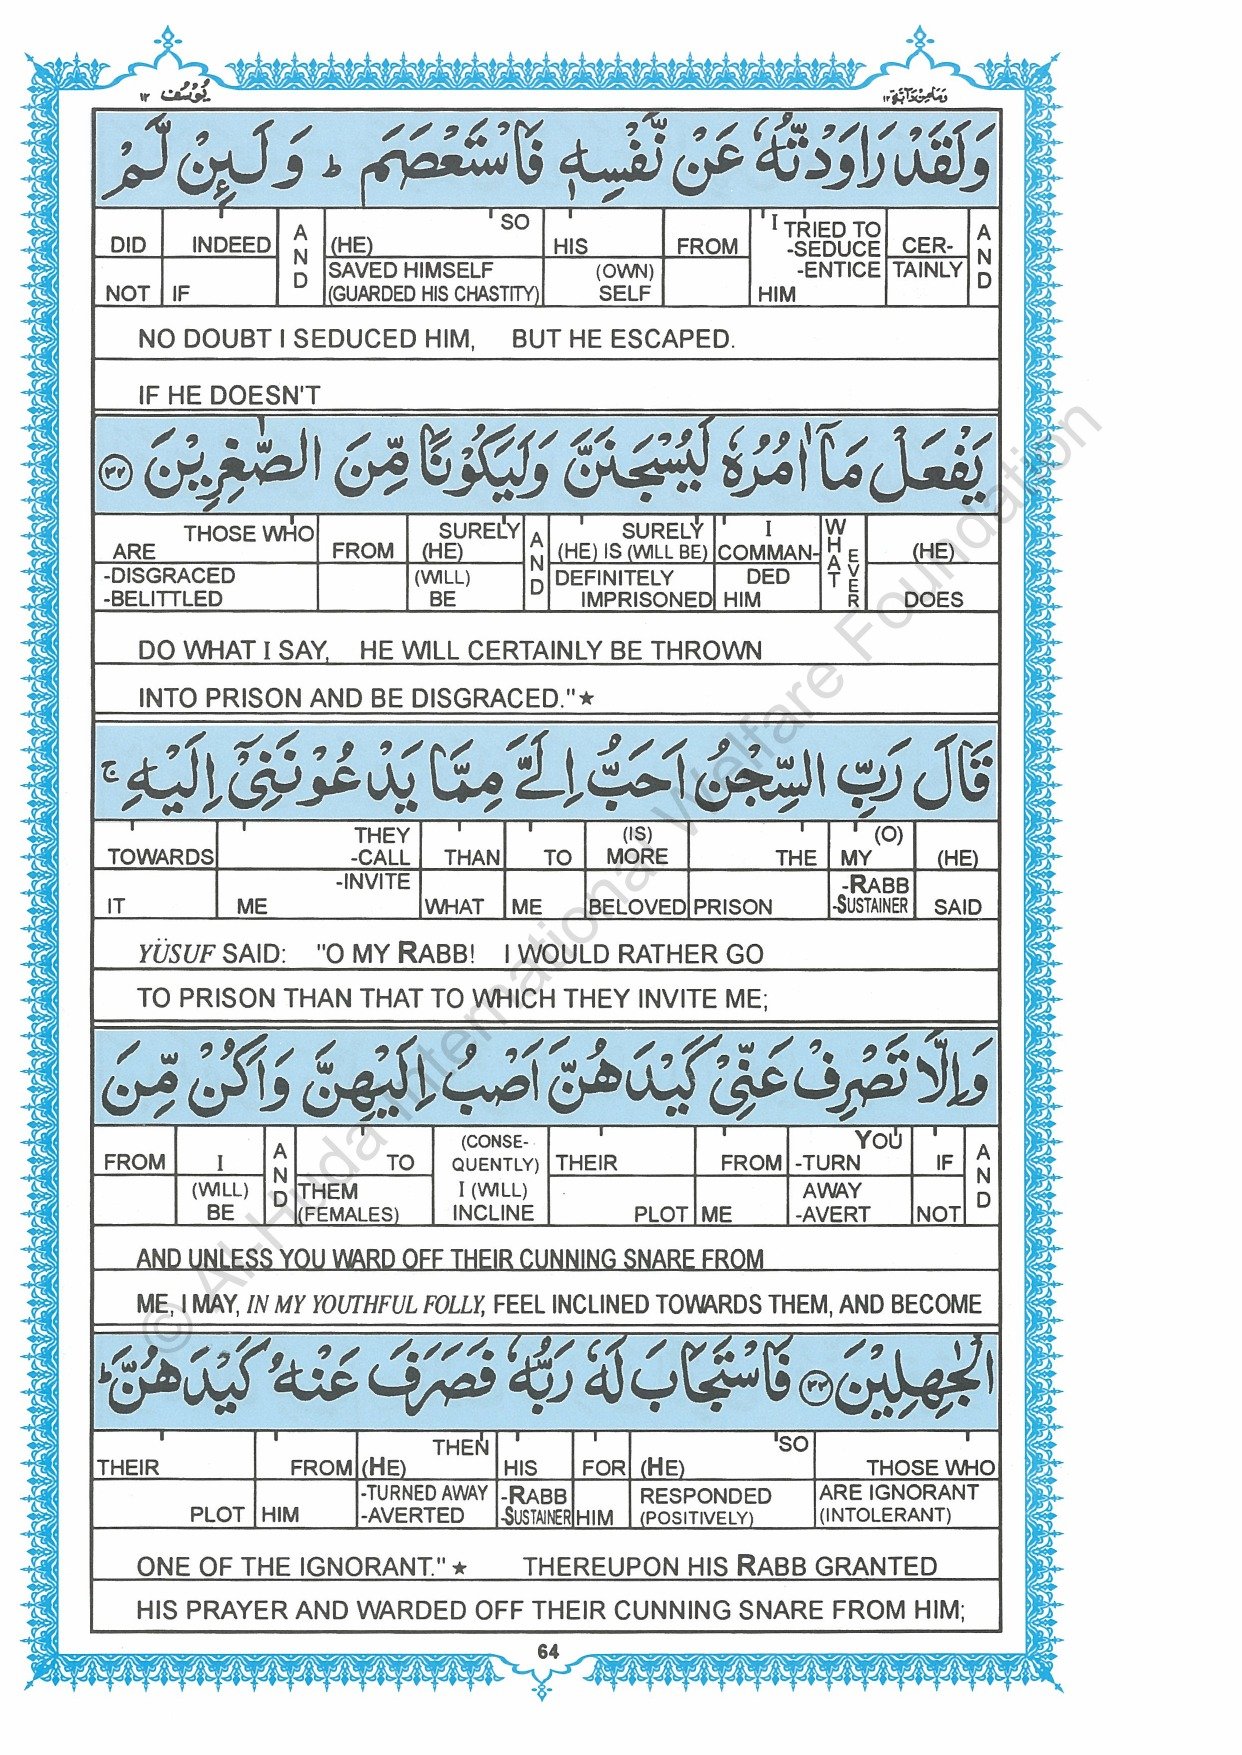 يُوْسُف ١٢
وَمَا مِنْ دَآبَّةٍ ١٢
وَلَقَدْ رَاوَدْتُّهٗ عَنْ نَّفْسِهٖ فَاسْتَعْصَمَ ؕ وَلَئِنْ لَّمْ
DID NOT | INDEED IF | AND | SO (HE) SAVED HIMSELF (GUARDED HIS CHASTITY) | HIS (OWN) SELF | FROM | I TRIED TO -SEDUCE -ENTICE HIM | CER- TAINLY | AND
NO DOUBT I SEDUCED HIM, BUT HE ESCAPED.
IF HE DOESN'T
يَفْعَلْ مَآ اٰمُرُهٗ لَيُسْجَنَنَّ وَلَيَكُوْنًا مِّنَ الصّٰغِرِيْنَ ٣٢
THOSE WHO ARE -DISGRACED -BELITTLED | FROM | SURELY (HE) (WILL) BE | AND | SURELY (HE) IS (WILL BE) DEFINITELY IMPRISONED | I COMMAN- DED HIM | WHAT EVER | (HE) DOES
DO WHAT I SAY, HE WILL CERTAINLY BE THROWN
INTO PRISON AND BE DISGRACED."★
قَالَ رَبِّ السِّجْنُ اَحَبُّ اِلَيَّ مِمَّا يَدْعُوْنَنِيْٓ اِلَيْهِ ۚ
TOWARDS IT | THEY -CALL -INVITE ME | THAN WHAT | TO ME | (IS) MORE BELOVED | THE PRISON | (O) MY -RABB -SUSTAINER | (HE) SAID
YÜSUF SAID: "O MY RABB! I WOULD RATHER GO
TO PRISON THAN THAT TO WHICH THEY INVITE ME;
وَاِلَّا تَصْرِفْ عَنِّيْ كَيْدَهُنَّ اَصْبُ اِلَيْهِنَّ وَاَكُنْ مِّنَ
FROM | I (WILL) BE | AND | TO THEM (FEMALES) | (CONSE- QUENTLY) I (WILL) INCLINE | THEIR PLOT | FROM ME | YOU -TURN AWAY -AVERT | IF NOT | AND
AND UNLESS YOU WARD OFF THEIR CUNNING SNARE FROM
ME, I MAY, IN MY YOUTHFUL FOLLY, FEEL INCLINED TOWARDS THEM, AND BECOME
الْجٰهِلِيْنَ ٣٣ فَاسْتَجَابَ لَهٗ رَبُّهٗ فَصَرَفَ عَنْهُ كَيْدَهُنَّ ؕ
THEIR PLOT | FROM HIM | THEN (HE) -TURNED AWAY -AVERTED | HIS -RABB -SUSTAINER | FOR HIM | SO (HE) RESPONDED (POSITIVELY) | THOSE WHO ARE IGNORANT (INTOLERANT)
ONE OF THE IGNORANT."★ THEREUPON HIS RABB GRANTED
HIS PRAYER AND WARDED OFF THEIR CUNNING SNARE FROM HIM;
64
© Al-Huda International Welfare Foundation